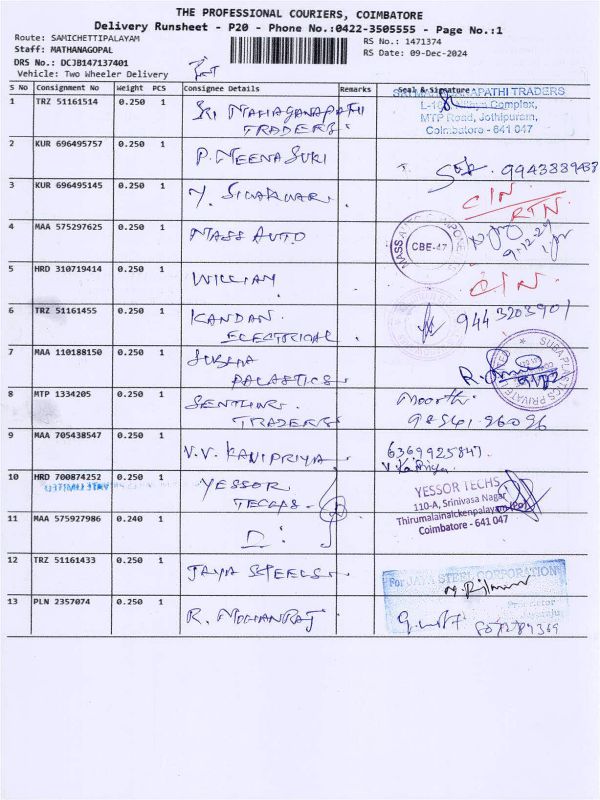 THE PROFESSIONAL COURIERS, COIMBATORE
Delivery Runsheet - P20 - Phone No.:0422-3505555 - Page No.:1
Route: SAMICHETTIPALAYAM RS No.: 1471374
Staff: MATHANAGOPAL RS Date: 09-Dec-2024
DRS No.: DCJB147137401
Vehicle: Two Wheeler Delivery
S No Consignment No Weight PCS Consignee Details Remarks Seal & Signature
1 TRZ 51161514 0.250 1 SRI MAHAGANAPATHI
TRADERS.
TRADERS
Complex,
MTP Road, Jothipuram,
Coimbatore - 641 047
2 KUR 696495757 0.250 1 P. MEENA SURI
3 KUR 696495145 0.250 1 Y. SIVAKUMAR.
C/N
RTN
4 MAA 575297625 0.250 1 MASS AUTO
CBE-47
5 HRD 310719414 0.250 1 WILLIAM
C/N.
6 TRZ 51161455 0.250 1 KANDAN 9443203901
ELECTRICAL
7 MAA 110188150 1 0.250 SUBHA
PALASTICS.
8 MTP 1334205 0.250 1 SENTHUR. Moorthi
TRADERS 98541-26026
9 MAA 705438547 0.250 1 V.V. KANIPRIYA 6369925847.
10 HRD 700874252 0.250 1 YESSOR
TECHS.
YESSOR TECHS
110-A, Srinivasa Nagar
Thirumalainaickenpalayam (Po)
Coimbatore - 641 047
11 MAA 575927986 0.240 1 D:
12 TRZ 51161433 0.250 1 JAYA STEELS
For JAYA STEEL CORPORATION
Proprietor
13 PLN 2357074 0.250 1 R. MOHANRAJ